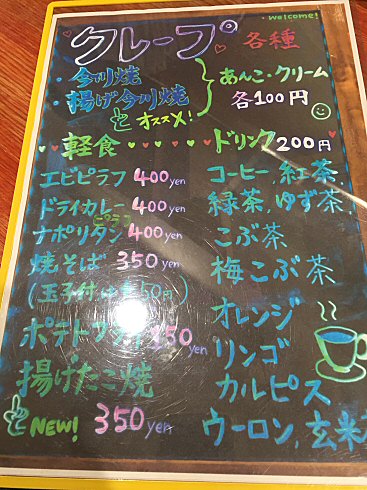 welcome!
クレープ 各種
・今川焼
・揚げ今川焼
あんこ・クリーム
各100円
オススメ!
軽食
エビピラフ 400yen
ドライカレー 400yen
ピラフ
ナポリタン 400yen
焼そば 350yen
(玉子付は 50円)
ポテトフライ 150yen
揚げたこ焼
NEW! 350yen
ドリンク 200円
コーヒー, 紅茶
緑茶, ゆず茶
こぶ茶
梅こぶ茶
オレンジ
リンゴ
カルピス
ウーロン, 玄米